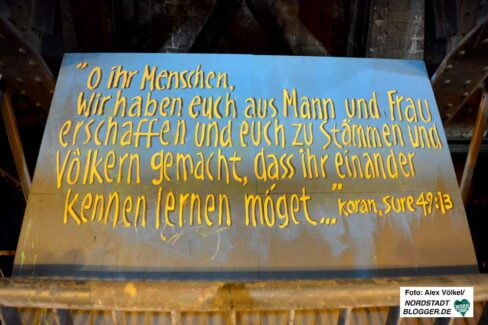 "O ihr Menschen,
Wir haben euch aus Mann und Frau
erschaffen und euch zu Stämmen und
Völkern gemacht, dass ihr einander
kennen lernen möget..." Koran, Sure 49:13
Foto: Alex Völkel/
NORDSTADT
BLOGGER.DE